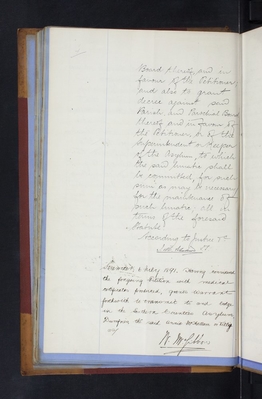 Board thereof and in
favour of the Petitioner
and also to grant
decree against said
Parish and Parochial Board
thereof and in favour of
the Petitioner or of the
Superintendent or Keeper
of the Asylum to which
the said lunatic shall
be committed, for such
sum as may be necessary
for the maintenance of
such lunatic, all in
terms of the foresaid
Statute.
According to Justice &c
6 May 1891. Having considered
the foregoing Petition with medical
certificates produced, grants warrant
to transmit to and lodge
in the Southern Counties Asylum,
Dumfries the said